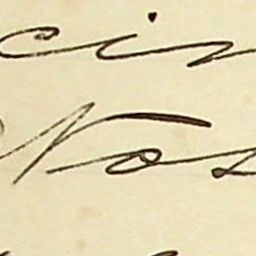 cin
Nos